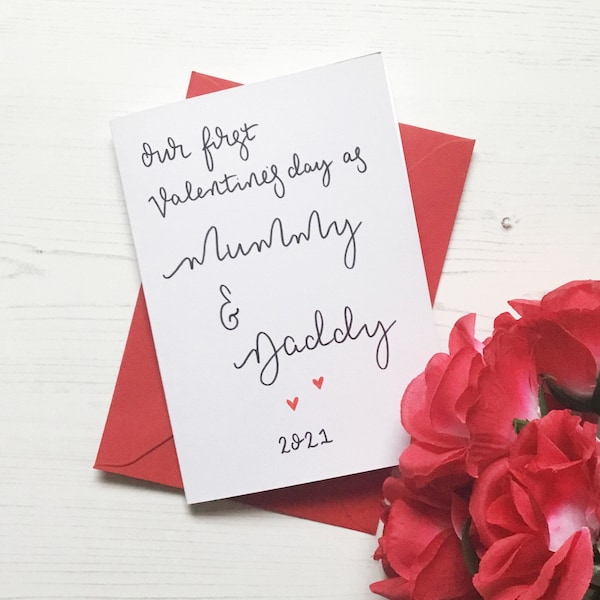 our first
Valentine's day as
Mummy
&
Daddy
2021